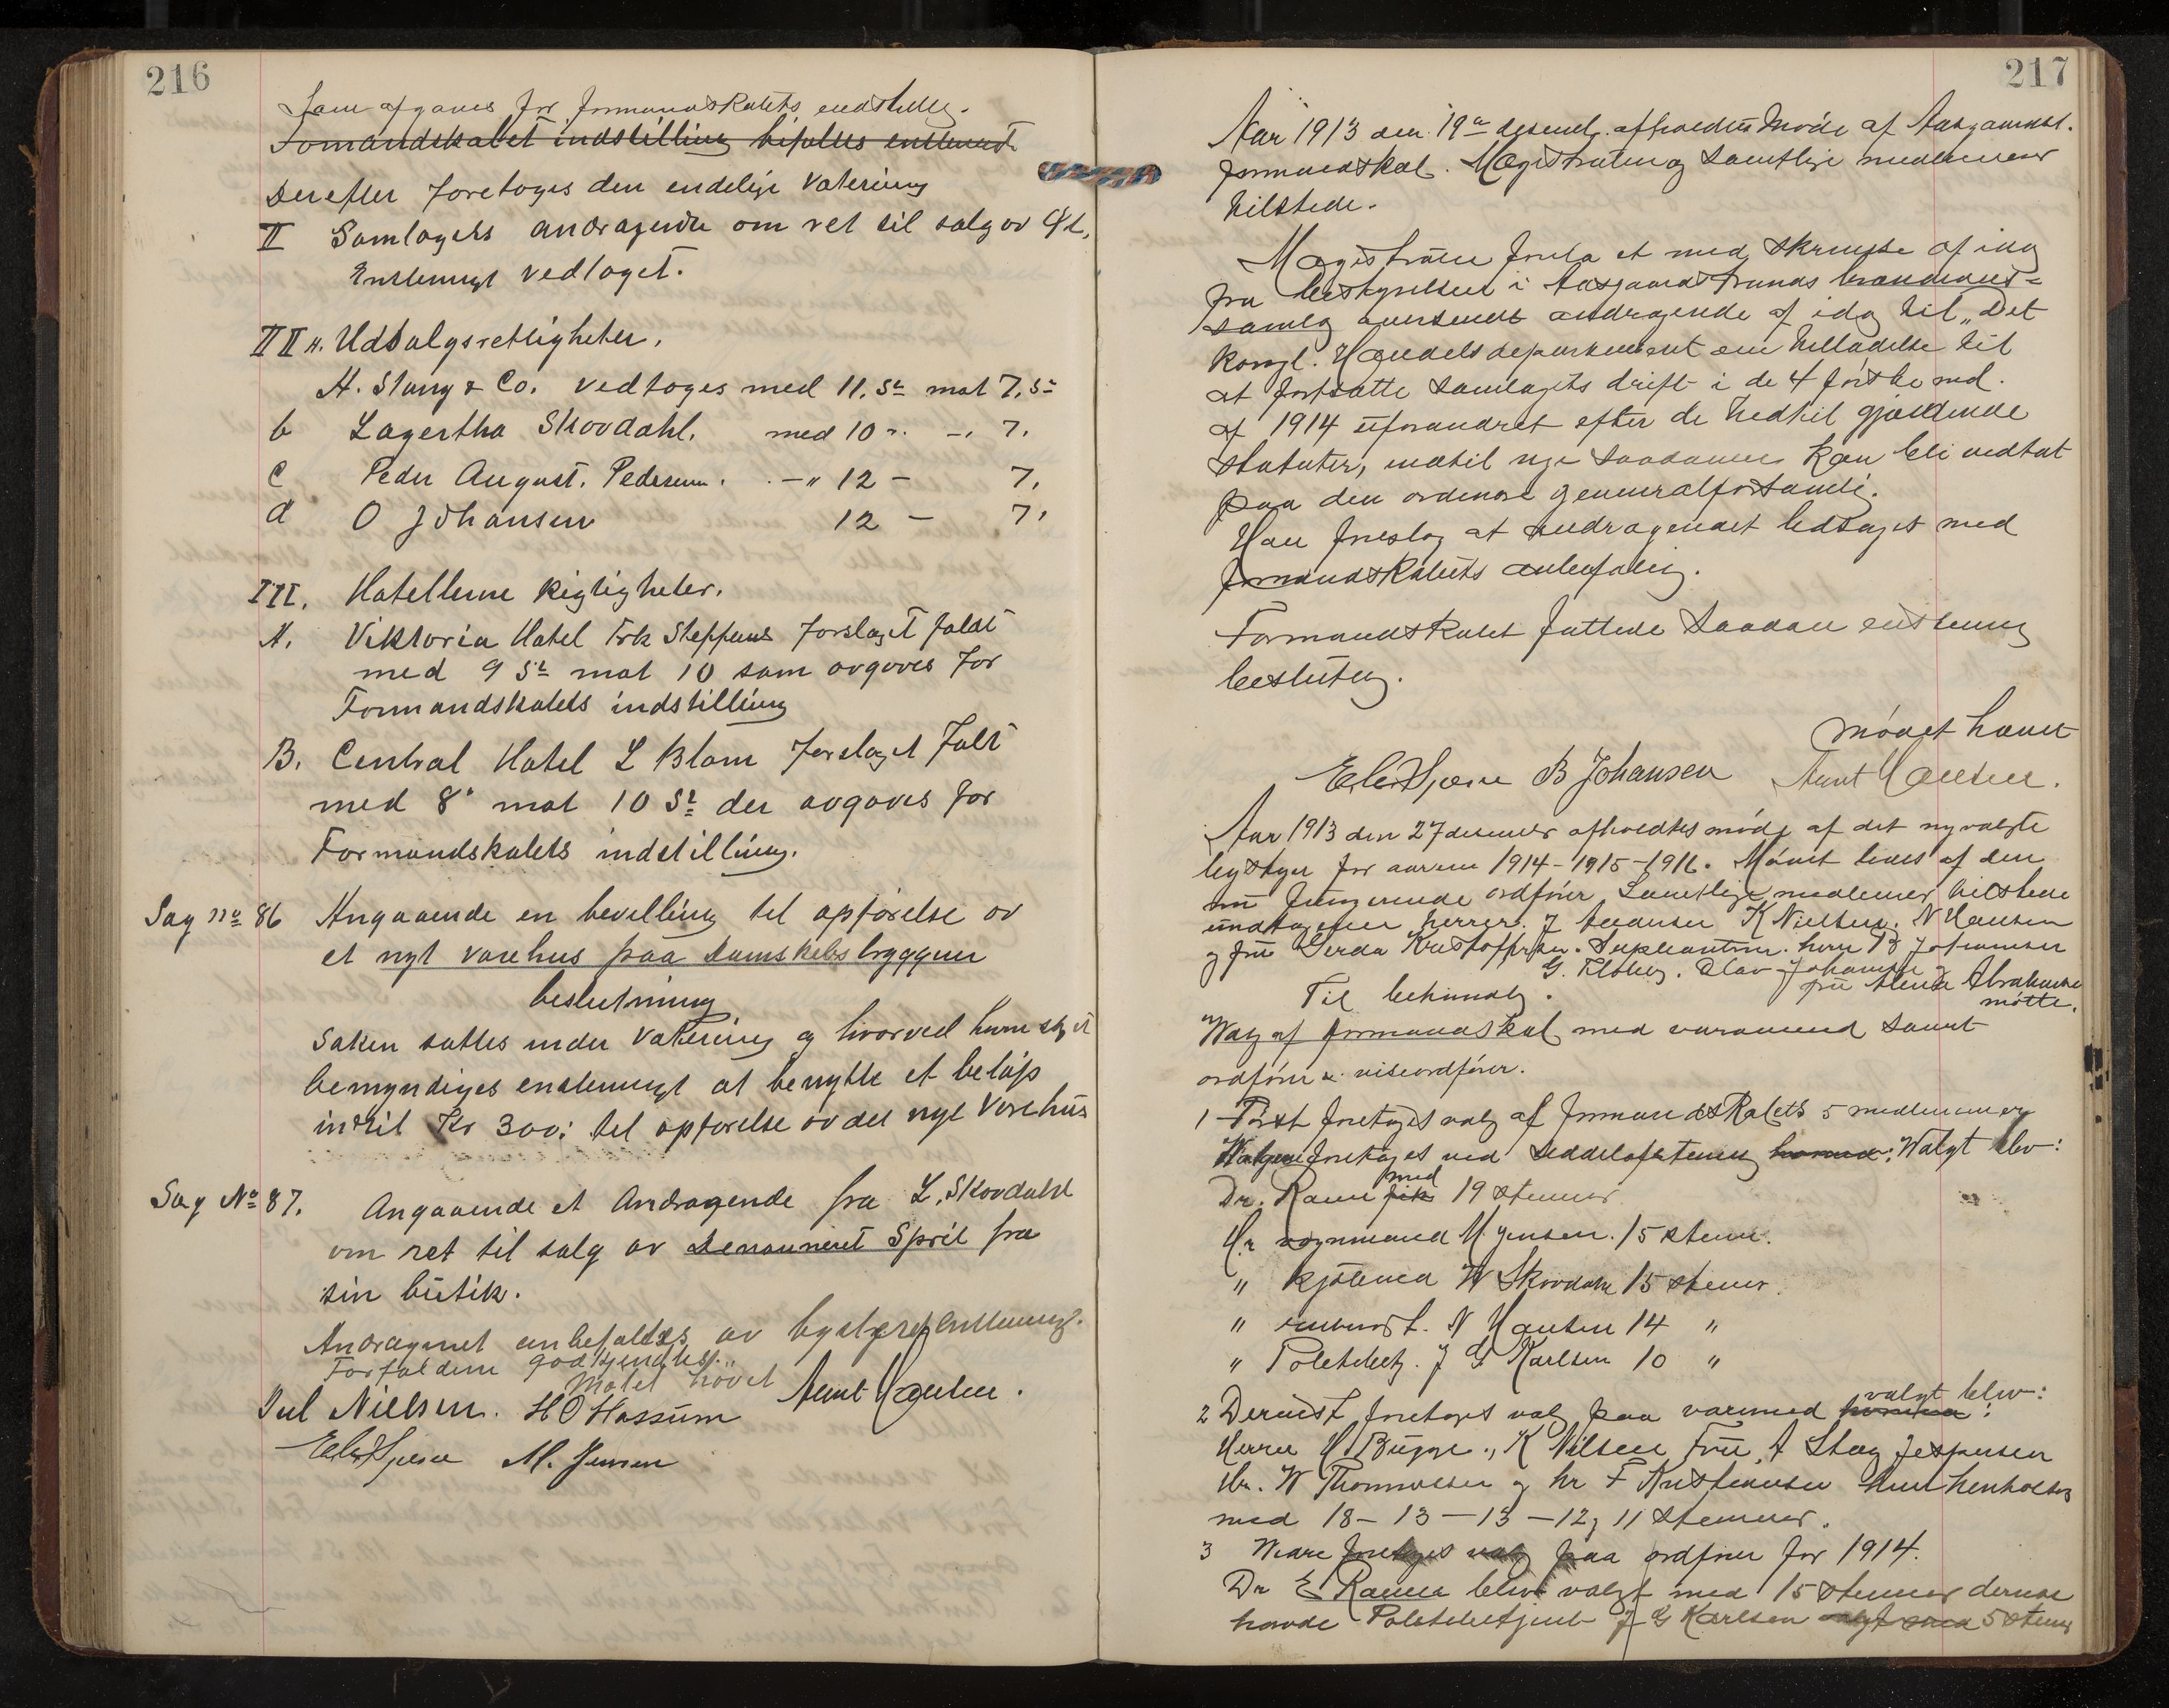 216
Som afgaves for formandskabets indstilling.
Fomandskabet indstilling bifaltes enstemt.
Derefter foretoges den endelige Votering
II Samlagets andragende om ret til salg av Øl,
Enstemigt vedtaget.
II II A. Udsalgsrettigheter.
A. Stang & Co. vedtoges med 11. St mot 7. St
b Lagertha Skovdahl. med 10 -. -. 7.
c Peder August. Pedersen. -" 12 - 7.
d O Johansen 12 - 7.
III. Hotellerne
A. Viktoria Hotel Frk Steffens forslaget faldt
med 9 St mot 10 som avgaves for
Formandskabets indstilling
B. Central Hotel L Blom forslaget falt
med 8 mot 10 St der avgaves for
Formandskabets indstilling.
Sag no 86 Angaaende en bevilling til opførelse av
et nyt varehus paa Damskibsbryggen
beslutning
Saken sattes under Votering og hvorved
bemyndiges enstemigt at benytte et beløp
indtil Kr 300: til opførelse av det nye Varehus
Sag No 87. Angaaende et Andragende fra L. Skovdahl
om ret til salg av Denaturert Sprit fra
sin butik.
Andraget anbefaltes av
Forfaldene godkjendtes.
Møtet hævet
Jul Nielsen. H O Hassum Aunt Hansen.
M. Jensen
217
Aar 1913 den 19de desemb. afholdtes Møde af Aasgaardst.
formandskab. Magistraten og samtlige medlemmer
tilstede.
Magistraten fremla et med skrivelse af idag
fra bestyrelsen i Aasgaardstrands brændevins-
samlag oversendt andragende af idag til "Det
kongl. Handelsdepartement om tilladelse til
at fortsætte samlagets drift i de 4 første md.
af 1914 uforandret efter de hidtil gjældende
statuter, indtil nye saadanne kan bli vedtat
paa den ordinære generalforsamlig.
Han foreslog at andragendet ledsages med
formandskabets anbefaling.
Formandskabet fattede saadan enstemig
beslutning.
Mødet hævet
B Johansen Aunt Hansen.
Aar 1913 den 27 desember afholdtes møde af det nyvalgte
bystyre for aarene 1914-1915-1916. Mødet ledes af den
nu fungerende ordfører Samtlige medlemmer tilstede
undtagen herrer. J K Nielsen. N Hansen
og fru Gerda Kristoffersen. Supleanterne. herr B Johannsen
G. Olav Johansen og
fru Abrahamsen
møtte.
Til behandlig.
Valg af formandskab med varamænd samt
ordfører & viseordfører.
1 Først foretages valg af formandskabets 5 medlemmer
Valgene foretages ved seddelafstemnig Valgt blev:
Dr. Ranu fik med 19 stemmer
Hr vognmand M Jensen. 15 stemr.
" kjøbmd W Skovdahl 15 stemr.
" N Hansen 14 "
" J G Karlsen 10 "
2 Dernæst foretages valg paa varamænd valgt blev:
Herrer H Bugge., K Nilsen Fru A Stang Jespersen
Hr. W Thommesen og hr F Kristiansen henholdsv
med 18 - 13 - 13 - 12 og 11 stemmer.
3 Videre foretages valg paa ordfører for 1914.
Dr E Ranu blev valgt med 15 stemmer dernæst
havde Politibetjent J G Karlsen valgt med 5 stemr